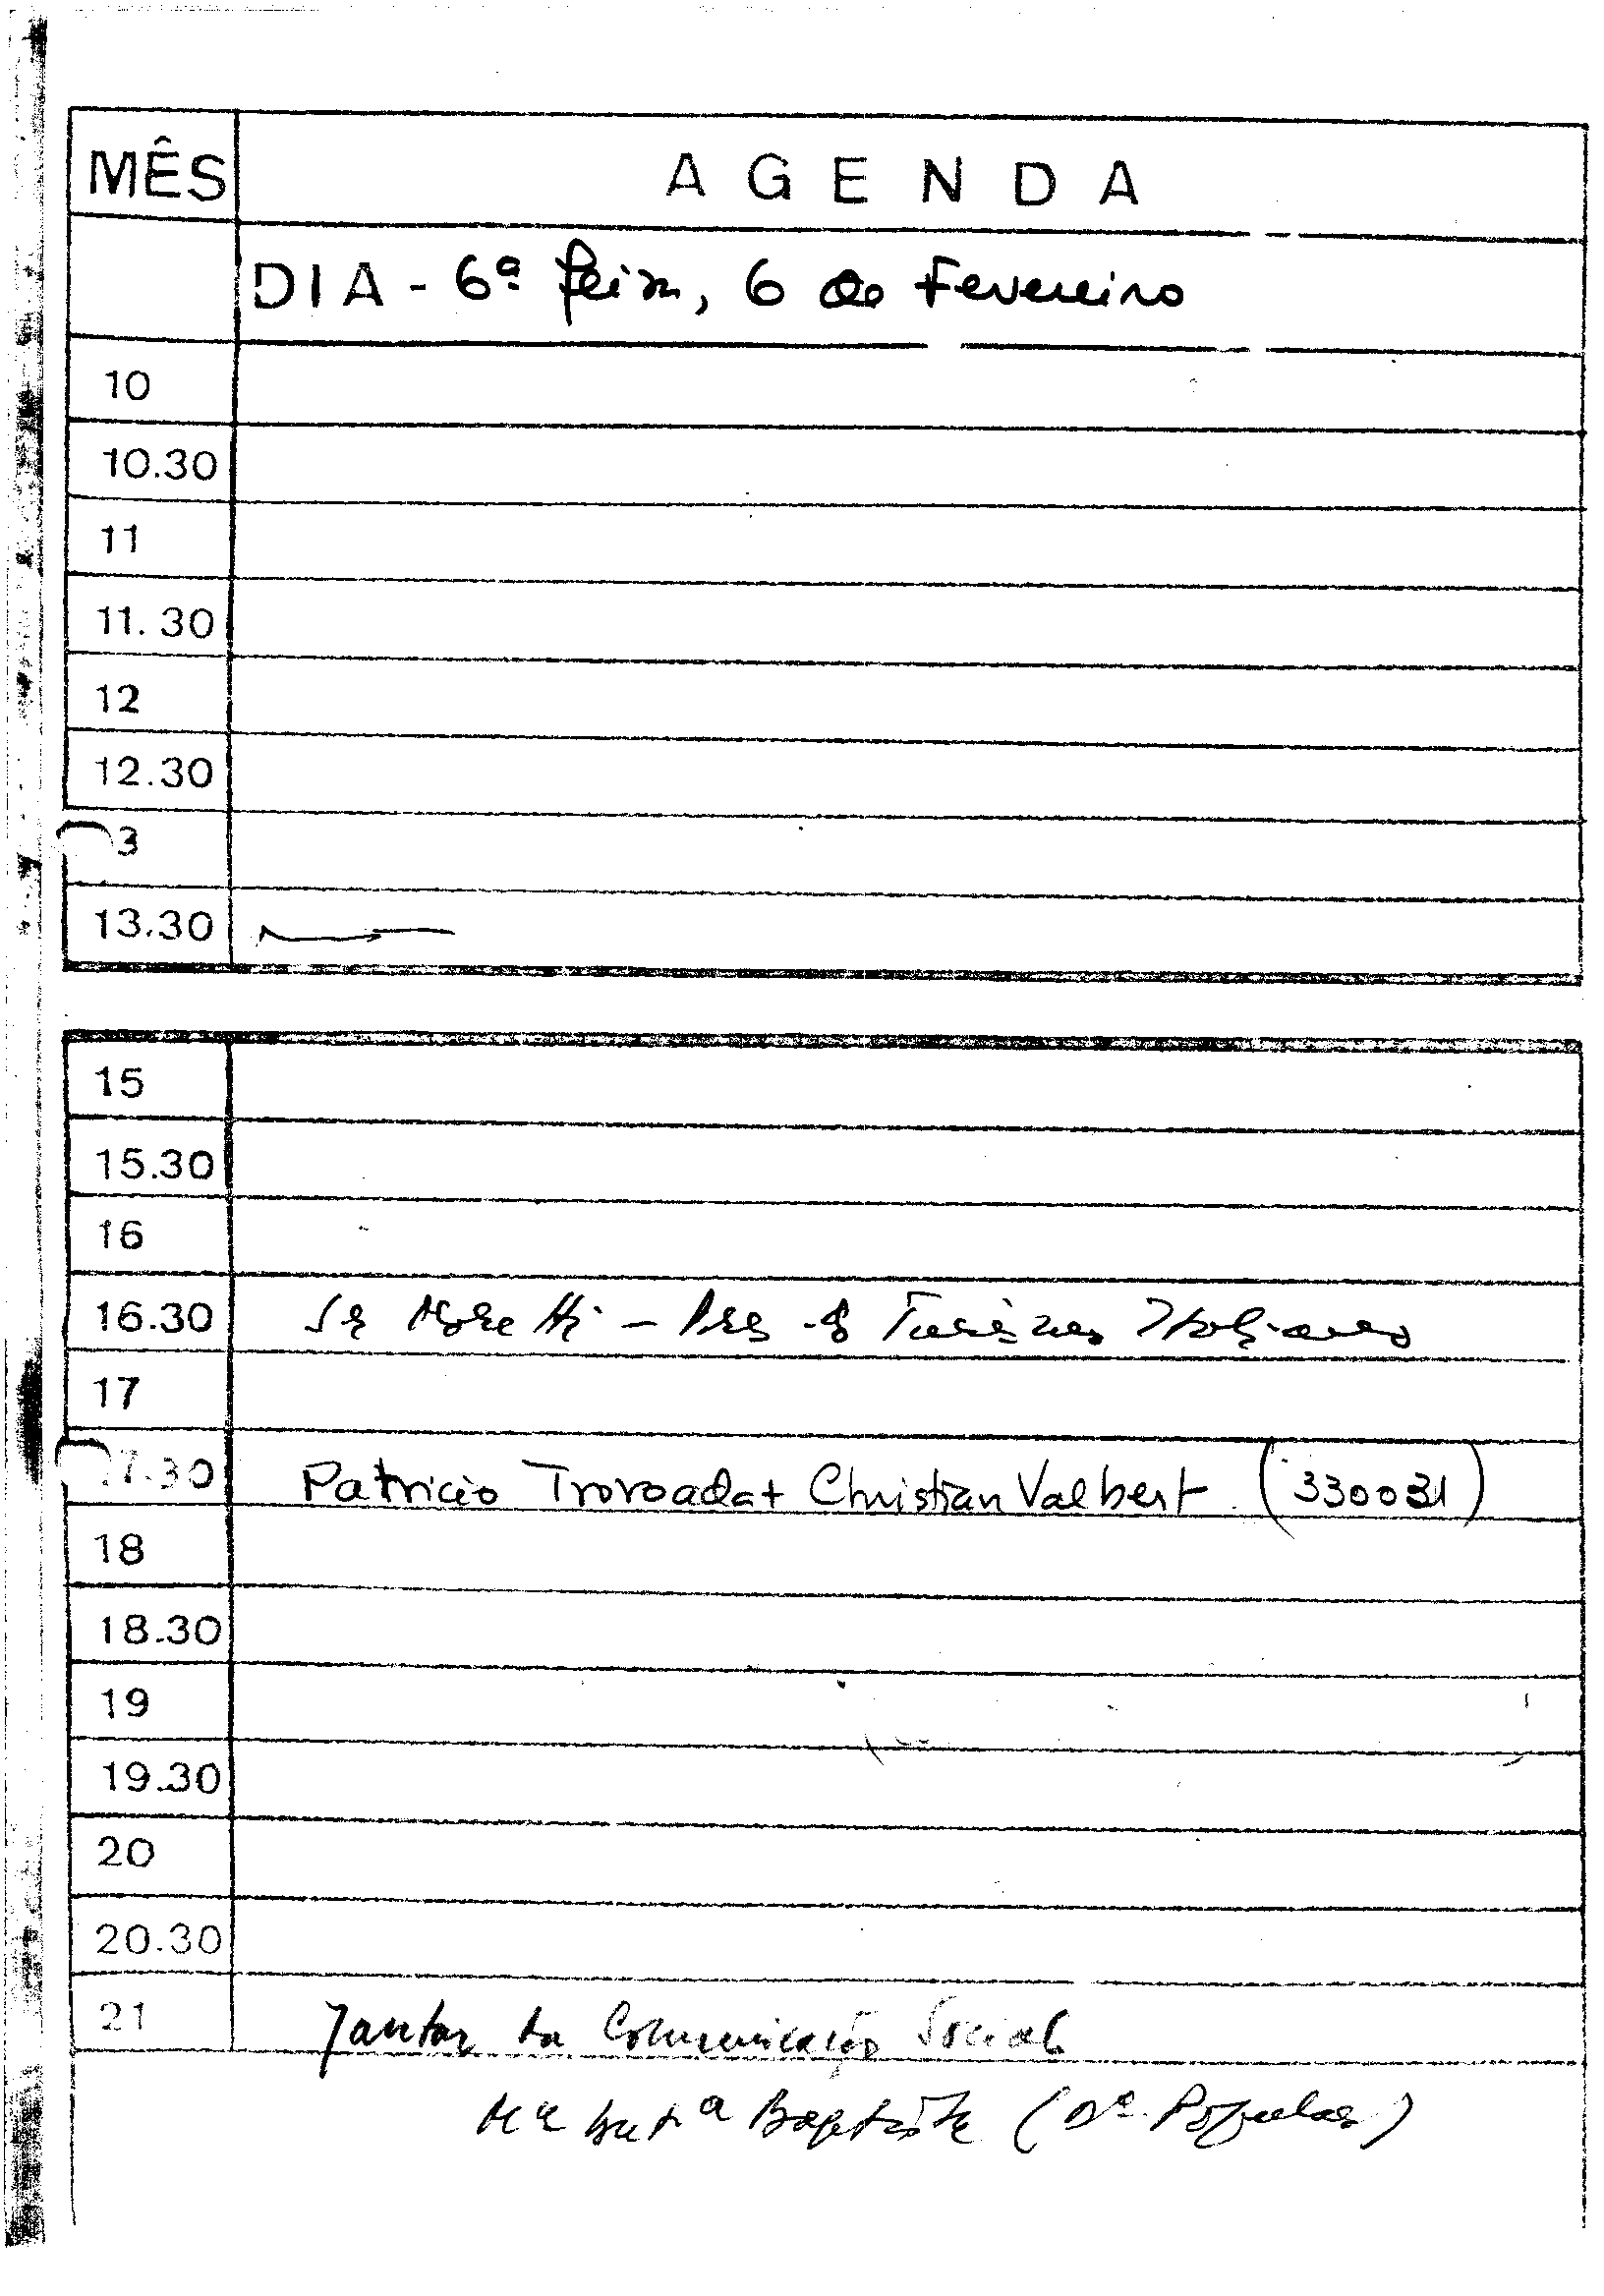 MÊS AGENDA
DIA - 6ª feira, 6 de Fevereiro
10
10.30
11
11.30
12
12.30
3
13.30
15
15.30
16
16.30 Sr Moretti - Pres
17
17.30 Patricio Trovoada + Christian Valbert (330031)
18
18.30
19
19.30
20
20.30
21 Jantar da Comunicação Social
Mª Baptista (Dº Popular)